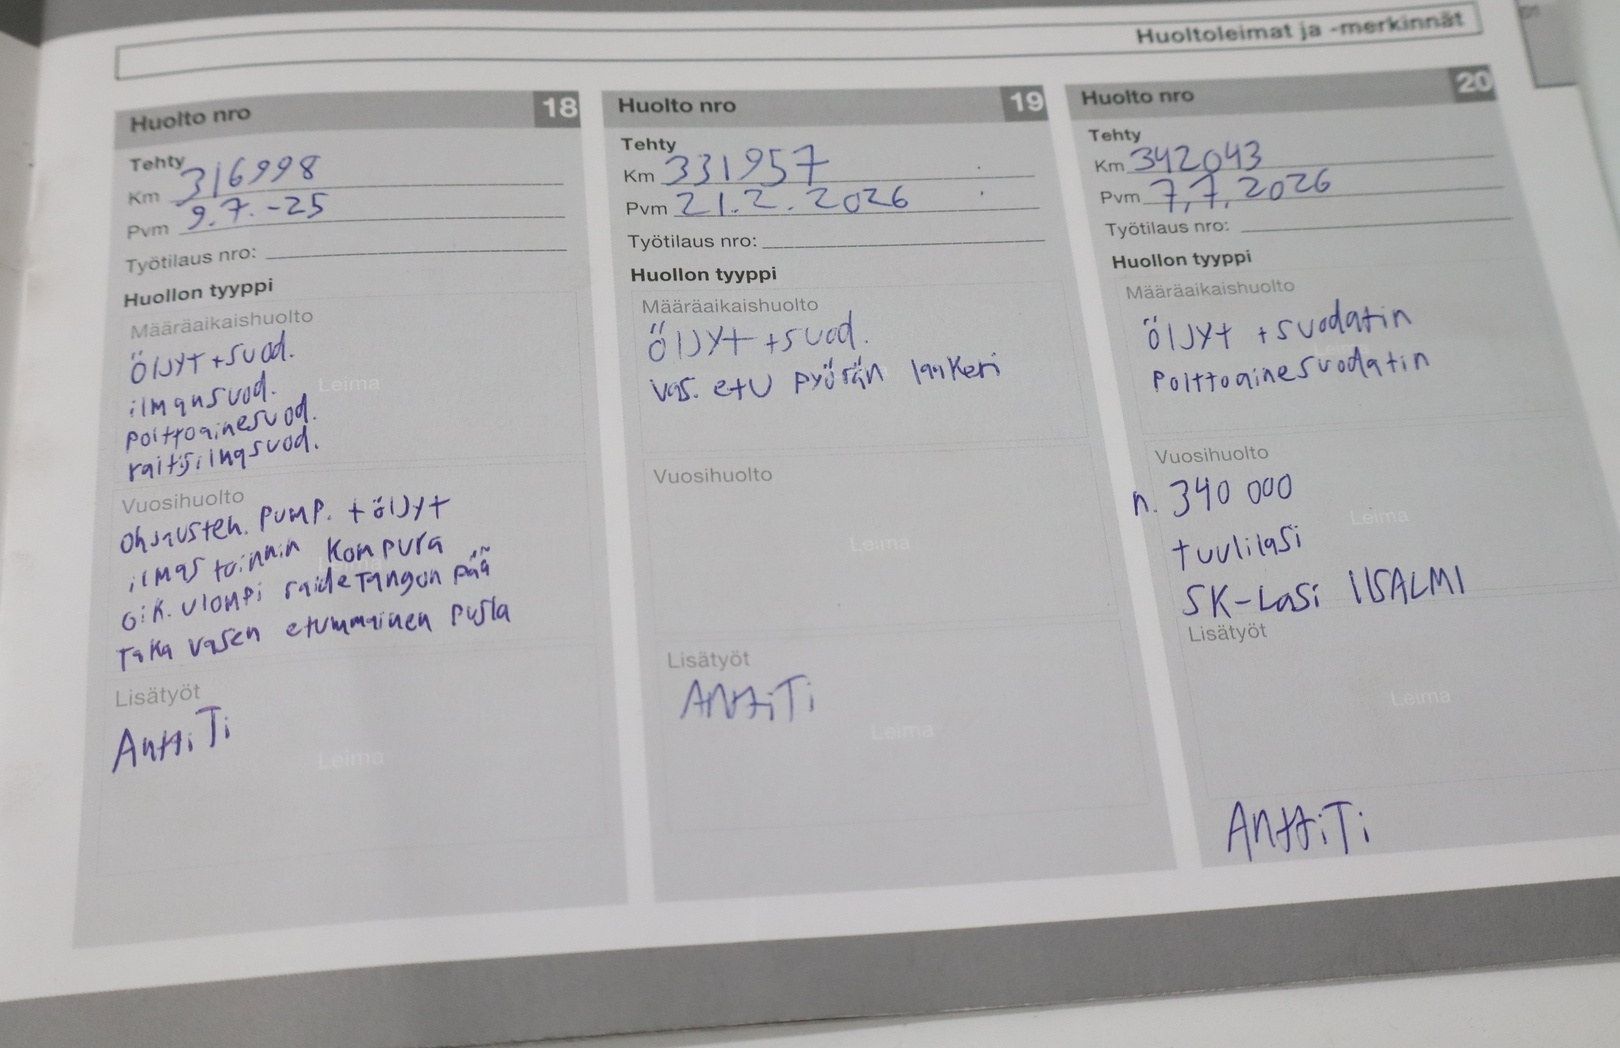 Huoltoleimat ja -merkinnät
Huolto nro 18
Tehty
Km 316998
Pvm 9.7.-25
Työtilaus nro:
Huollon tyyppi
Määräaikaishuolto
Öljyt + suod.
ilmansuod.
Leima
polttoainesuod.
raitisilmasuod.
Vuosihuolto
Ohjausteh. pump. + öljyt
ilmastoinnin kompura
Leima
oik. ulompi raidetangon pää
Taka vasen etummainen pusla
Lisätyöt
AnttiTi
Leima
Huolto nro 19
Tehty
Km 331957
Pvm 21.2.2026
Työtilaus nro:
Huollon tyyppi
Määräaikaishuolto
Öljyt + suod.
vas. etu pyörän laakeri
Vuosihuolto
Leima
Lisätyöt
AnttiTi
Leima
Huolto nro 20
Tehty
Km 342043
Pvm 7,7,2026
Työtilaus nro:
Huollon tyyppi
Määräaikaishuolto
Öljyt + suodatin
Polttoainesuodatin
Vuosihuolto
n. 340 000
Leima
tuulilasi
SK-Lasi IISALMI
Lisätyöt
Leima
AnttiTi